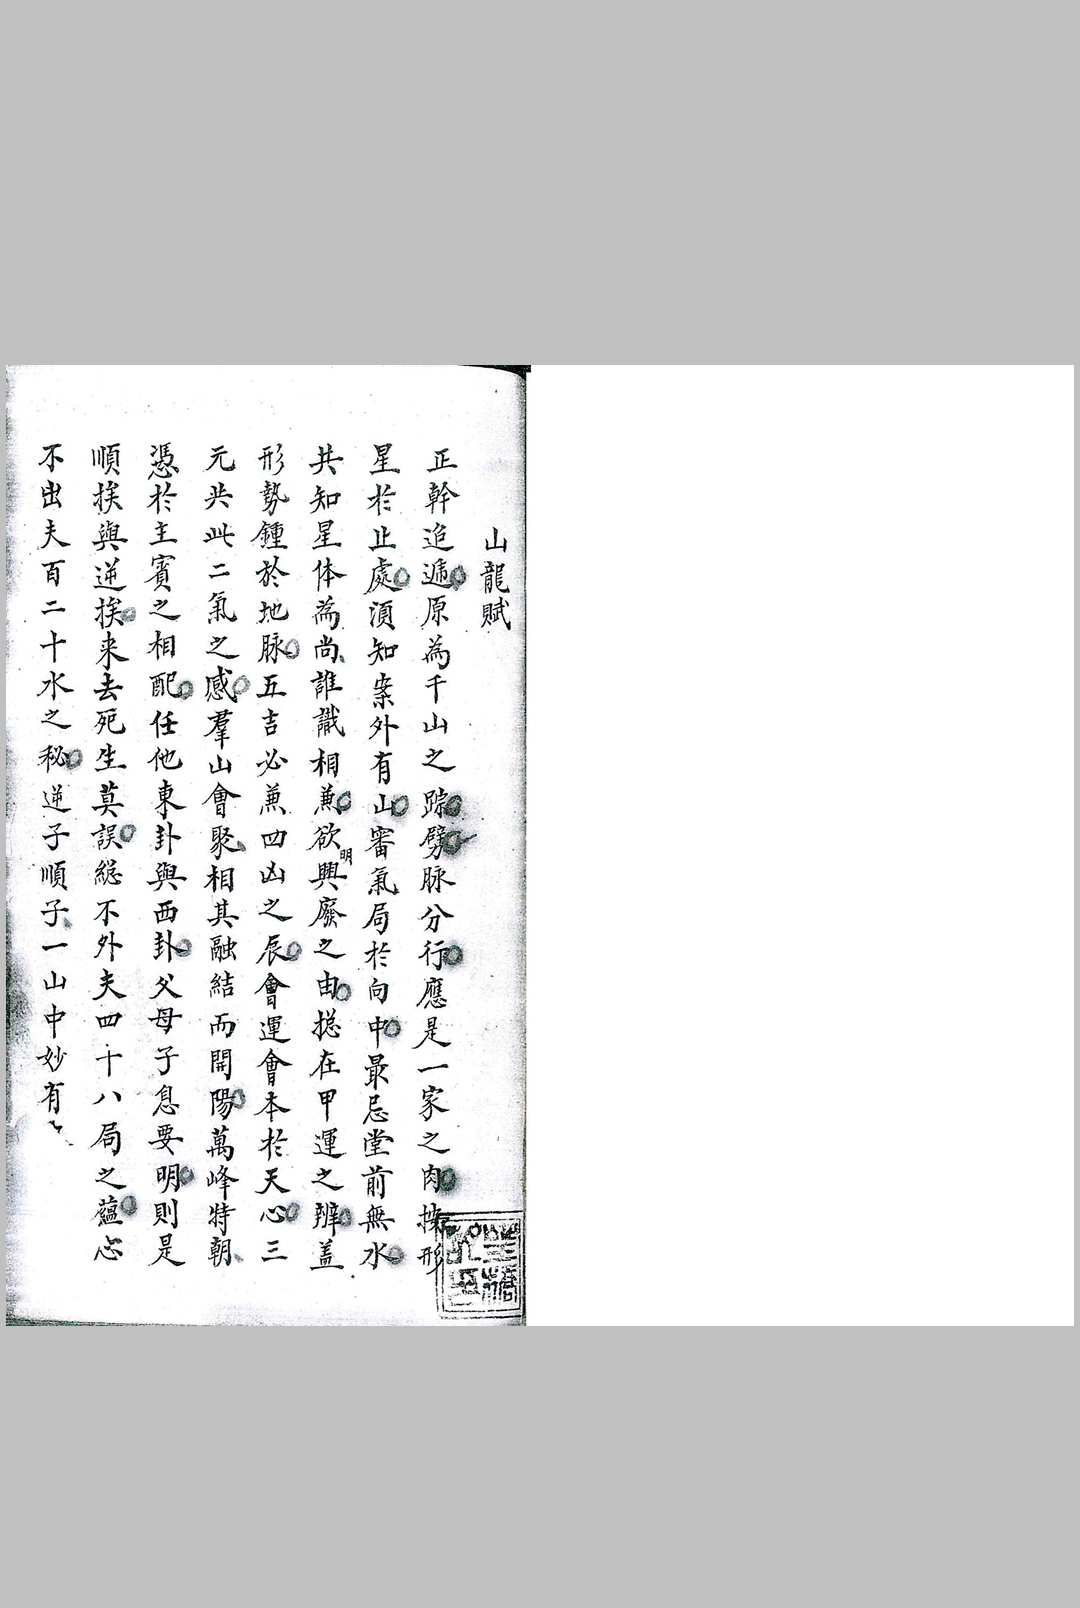 山龍賦
正幹追遞原為千山之踪劈脉分行應是一家之肉揀形
星於止處須知案外有山審氣局於向中最忌堂前無水
共知星体為尚誰識相兼欲明興廢之由揔在甲運之辨盖
形勢鍾於地脉五吉必兼四凶之辰會運會本於天心三
元共此二氣之感羣山會聚相其融結而開陽萬峰特朝
憑於主賓之相配任他東卦與西卦父母子息要明則是
順挨與逆挨来去死生莫誤緫不外夫四十八局之蘊
不出夫百二十水之秘逆子順子一山中妙有